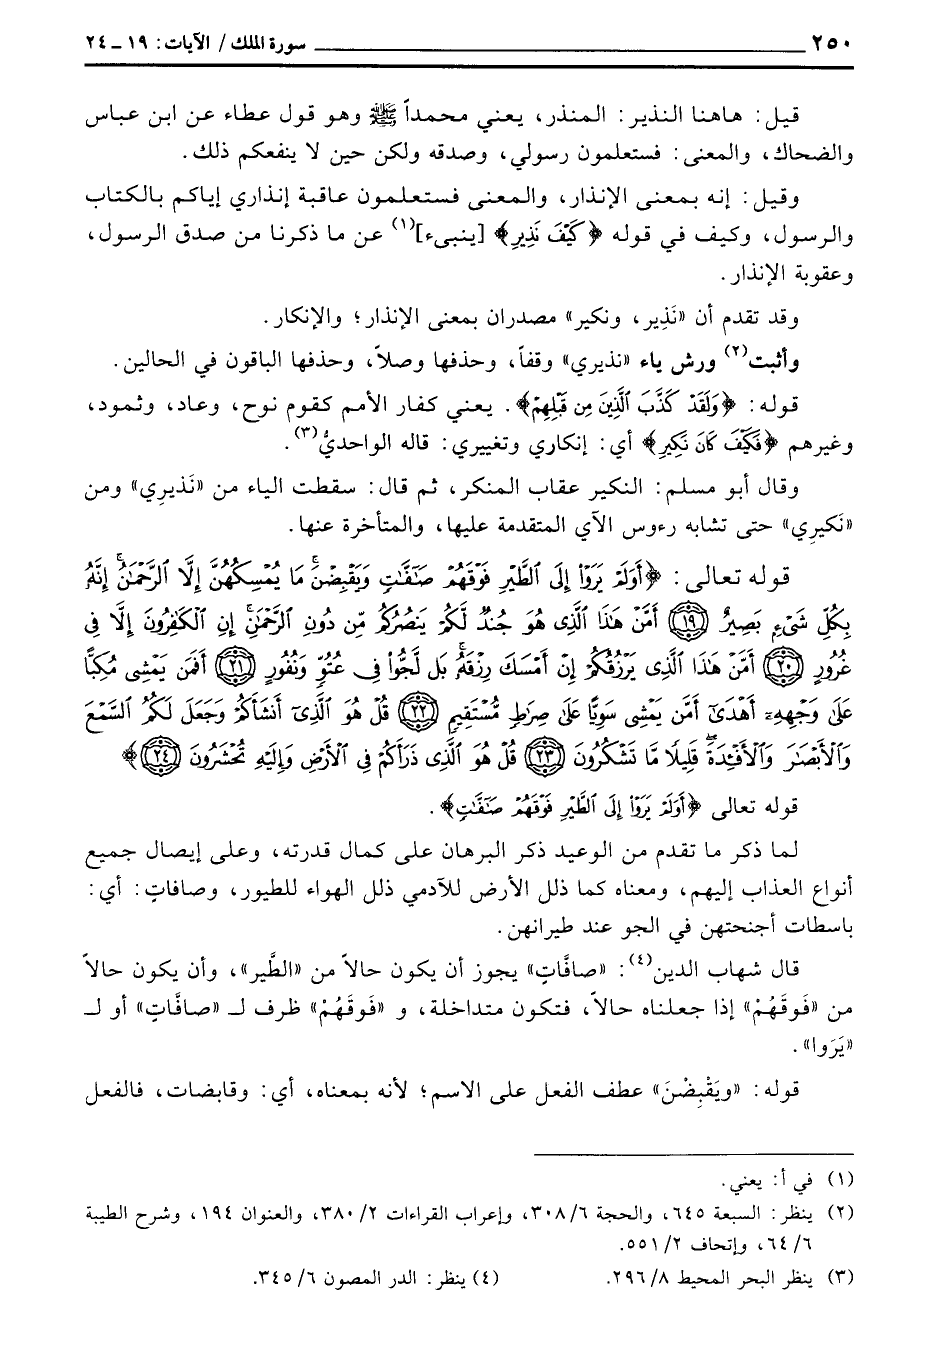 ٢٥٠ سورة الملك / الآيات: ١٩ ـ ٢٤
قيل: هاهنا النذير: المنذر، يعني محمداً ﷺ وهو قول عطاء عن ابن عباس
والضحاك، والمعنى: فستعلمون رسولي، وصدقه ولكن حين لا ينفعكم ذلك.
وقيل: إنه بمعنى الإنذار، والمعنى فستعلمون عاقبة إنذاري إياكم بالكتاب
والرسول، وكيف في قوله ﴿كَيْفَ نَذِيرِ﴾ [ينبىء](١) عن ما ذكرنا من صدق الرسول،
وعقوبة الإنذار.
وقد تقدم أن «نَذِير، ونكير» مصدران بمعنى الإنذار؛ والإنكار.
وأثبت(٢) ورش ياء «نذيري» وقفاً، وحذفها وصلاً، وحذفها الباقون في الحالين.
قوله: ﴿وَلَقَدْ كَذَّبَ ٱلَّذِينَ مِن قَبْلِهِمْ﴾. يعني كفار الأمم كقوم نوح، وعاد، وثمود،
وغيرهم ﴿فَكَيْفَ كَانَ نَكِيرِ﴾ أي: إنكاري وتغييري: قاله الواحديُّ(٣).
وقال أبو مسلم: النكير عقاب المنكر، ثم قال: سقطت الياء من «نَذيرِي» ومن
«نَكيرِي» حتى تشابه رءوس الآي المتقدمة عليها، والمتأخرة عنها.
قوله تعالى: ﴿أَوَلَمْ يَرَوْا۟ إِلَى ٱلطَّيْرِ فَوْقَهُمْ صَـٰٓفَّـٰتٍ وَيَقْبِضْنَ ۚ مَا يُمْسِكُهُنَّ إِلَّا ٱلرَّحْمَـٰنُ ۚ إِنَّهُۥ
بِكُلِّ شَىْءٍۭ بَصِيرٌ ﴿١٩﴾ أَمَّنْ هَـٰذَا ٱلَّذِى هُوَ جُندٌ لَّكُمْ يَنصُرُكُم مِّن دُونِ ٱلرَّحْمَـٰنِ ۚ إِنِ ٱلْكَـٰفِرُونَ إِلَّا فِى
غُرُورٍ ﴿٢٠﴾ أَمَّنْ هَـٰذَا ٱلَّذِى يَرْزُقُكُمْ إِنْ أَمْسَكَ رِزْقَهُۥ ۚ بَل لَّجُّوا۟ فِى عُتُوٍّ وَنُفُورٍ ﴿٢١﴾ أَفَمَن يَمْشِى مُكِبًّا
عَلَىٰ وَجْهِهِۦٓ أَهْدَىٰٓ أَمَّن يَمْشِى سَوِيًّا عَلَىٰ صِرَٰطٍ مُّسْتَقِيمٍ ﴿٢٢﴾ قُلْ هُوَ ٱلَّذِىٓ أَنشَأَكُمْ وَجَعَلَ لَكُمُ ٱلسَّمْعَ
وَٱلْأَبْصَـٰرَ وَٱلْأَفْـِٔدَةَ ۖ قَلِيلًا مَّا تَشْكُرُونَ ﴿٢٣﴾ قُلْ هُوَ ٱلَّذِى ذَرَأَكُمْ فِى ٱلْأَرْضِ وَإِلَيْهِ تُحْشَرُونَ ﴿٢٤﴾﴾
قوله تعالى ﴿أَوَلَمْ يَرَوْا۟ إِلَى ٱلطَّيْرِ فَوْقَهُمْ صَـٰٓفَّـٰتٍ﴾.
لما ذكر ما تقدم من الوعيد ذكر البرهان على كمال قدرته، وعلى إيصال جميع
أنواع العذاب إليهم، ومعناه كما ذلل الأرض للآدمي ذلل الهواء للطيور، وصافاتٍ: أي:
باسطات أجنحتهن في الجو عند طيرانهن.
قال شهاب الدين(٤): «صافَّاتٍ» يجوز أن يكون حالاً من «الطَّير»، وأن يكون حالاً
من «فَوقَهُمْ» إذا جعلناه حالاً، فتكون متداخلة، و «فَوقَهُمْ» ظرف لـ «صافَّاتٍ» أو لـ
«يَرَوا».
قوله: «ويَقْبِضْنَ» عطف الفعل على الاسم؛ لأنه بمعناه، أي: وقابضات، فالفعل
(١) في أ: يعني.
(٢) ينظر: السبعة ٦٤٥، والحجة ٣٠٨/٦، وإعراب القراءات ٣٨٠/٢، والعنوان ١٩٤، وشرح الطيبة
٦٤/٦، وإتحاف ٥٥١/٢.
(٣) ينظر البحر المحيط ٢٩٦/٨. (٤) ينظر: الدر المصون ٣٤٥/٦.